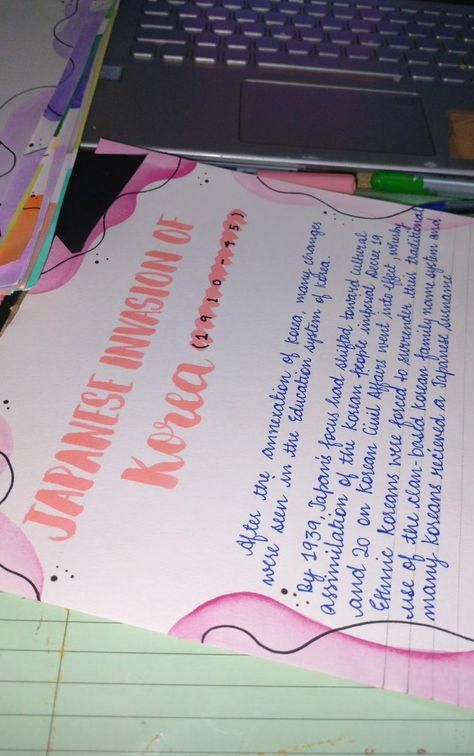 JAPANESE INVASION OF
Korea (1910-45)
After the annexation of Korea, many changes
were seen in the Education system of Korea.
By 1939, Japan's focus had shifted toward cultural
assimilation of the Korean people imperial Decree 19
and 20 on Korean Civil Affairs went into effect, whereby
Ethnic Koreans were forced to surrender their traditional
use of the clan-based Korean family name system and
many Koreans recieved a Japanese Surname